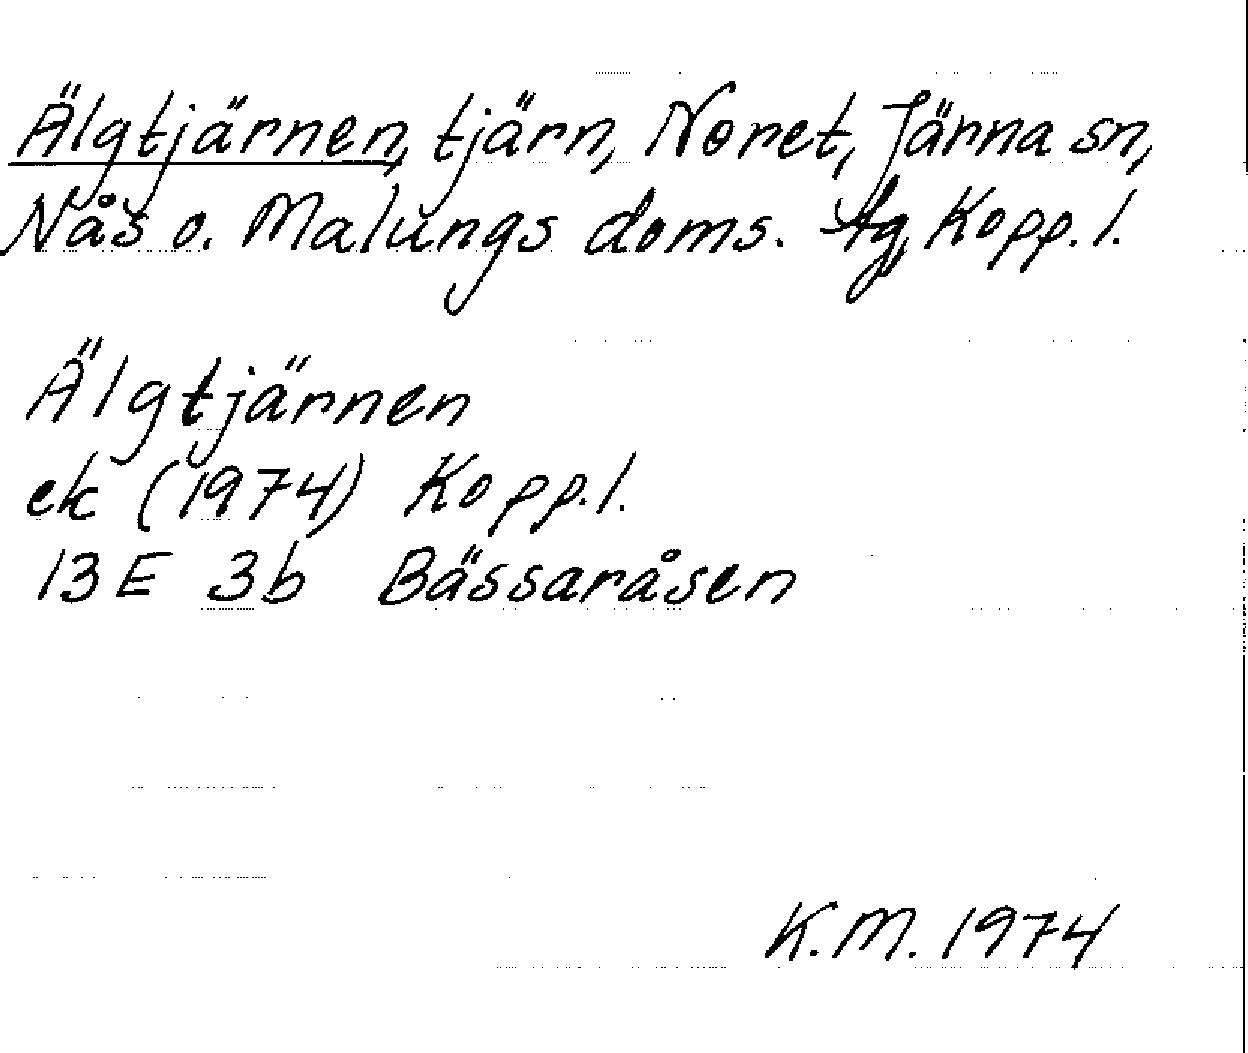 Älgtjärnen, tjärn, Noret, Järna sn,
Nås o. Malungs doms. tg, Kopp. l.
Älgtjärnen
ek (1974) Kopp. l.
13 E 3b Bässaråsen
K.M. 1974